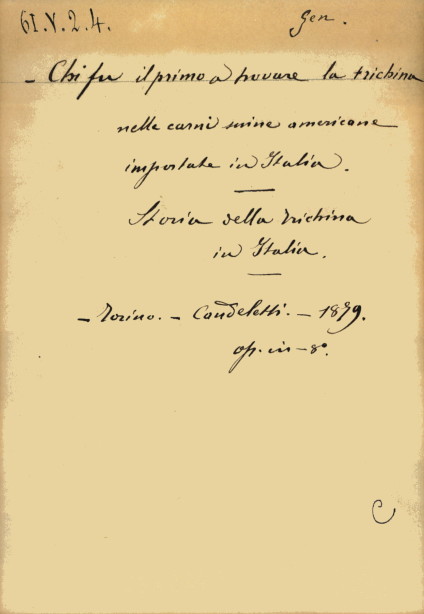 61.V.2.4.
Gen.
- Chi fu il primo a trovare la trichina
nelle carni suine americane
importate in Italia.
Storia della trichina
in Italia.
- Torino. - Candeletti. - 1879.
op. in-8°.
C